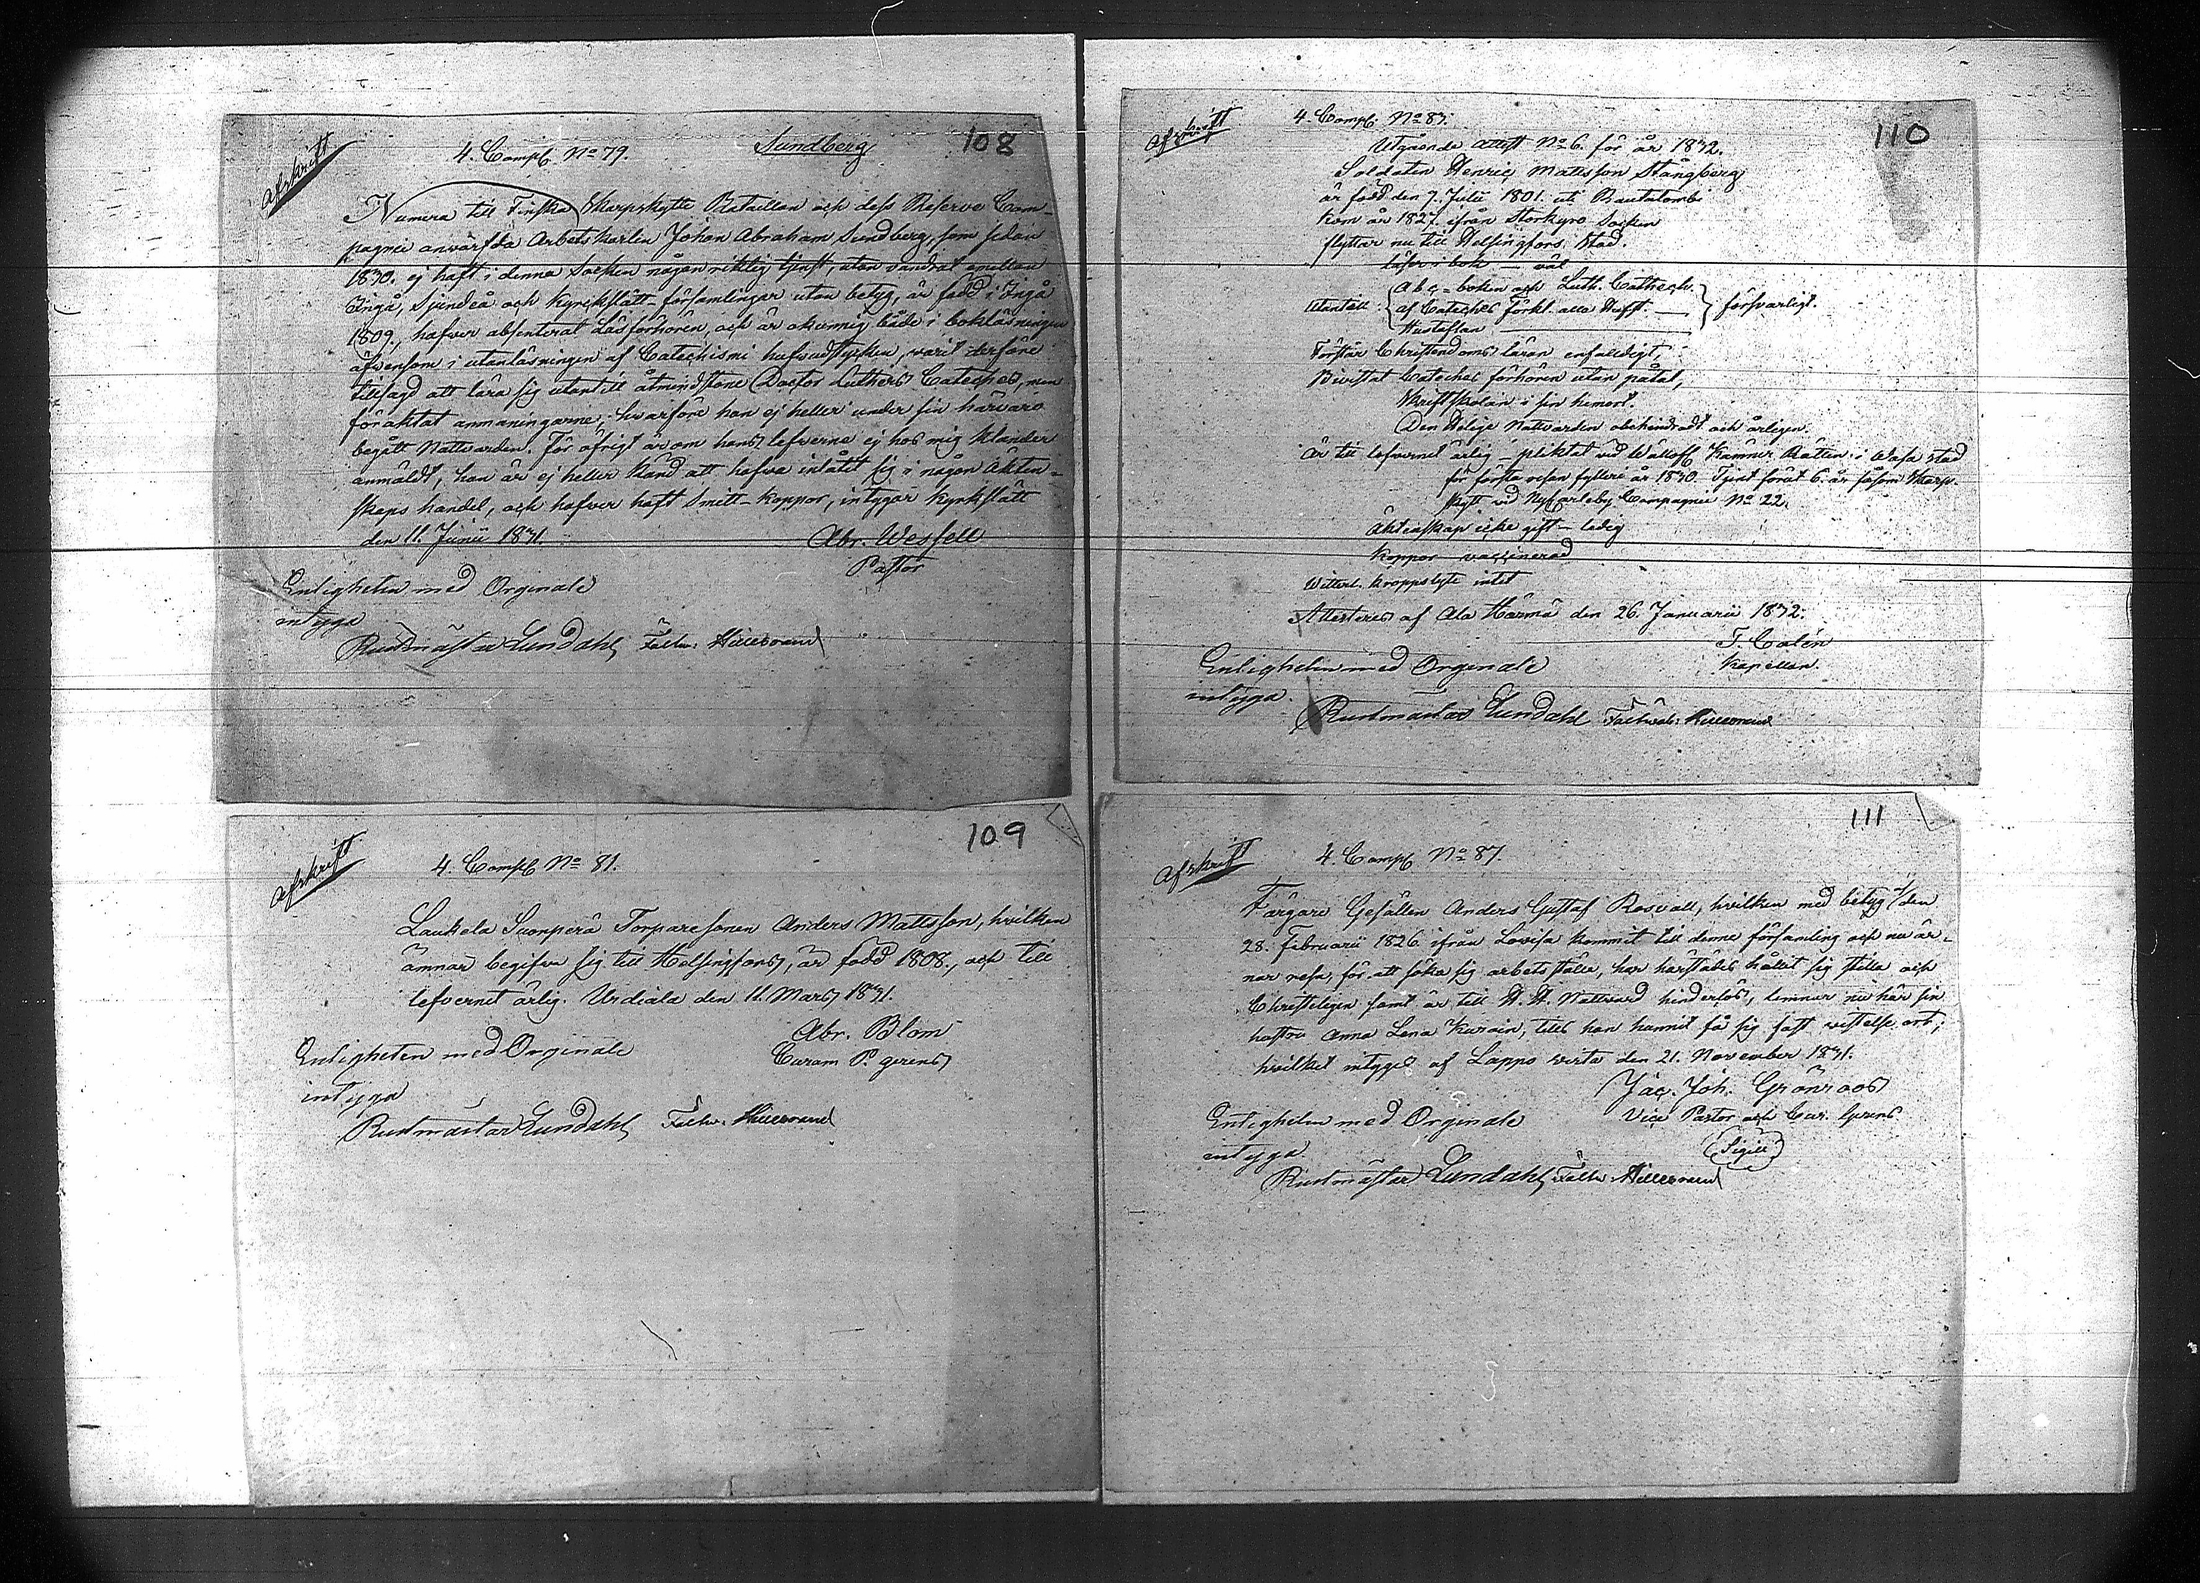 108
Afskrift
4. Comp. No 79. Sundberg
Numera till Finska Skarpskytte Bataillon och dess Reserve Com-
pagnie anwärfda Arbets Karlen Johan Abraham Sundberg, som sedan
1830. ej haft i denna Socken någon riktig tjenst, utan vandrat emellan
Ingå, Sjundeå och Kyrckslätt-församlingar utan betyg, är född i Ingå
1809, hafver absenterat Läsförhören, och är okunnig både i bokläsningen
äfvensom i utanläsningen af Catechismi hufvudstycken, varit derföre
tillsagd att lära sig utantill åtminstone Doctor Luthers Cateches, men
föraktat anmaningarne; hvarföre han ej heller under sin härvaro
begått Nattvarden. För öfrigt är om hans lefverne ej hos mig klander
anmäldt, han är ej heller känd att hafva inlåtit sig i någon Äkten-
skaps handel, och hafver haft Smitt-koppor, intygar Kyrkslätt
den 11. Junii 1831.
Abr. Wesfell
Pastor
Enligheten med Orginale
intyga
Rustmästar Lundahl Fältw: Hillebrand
109
Afskrift
4. Comp No 81.
Laukela Suonperä Torparesonen Anders Mattsson, hvilken
ämnar begifva sig till Helsingfors, är född 1808., och till
lefvernet ärlig. Urdiala den 11. Mars 1831.
Abr. Blom
Curam P. gerens
Enligheten med Orginale
intyga
Rustmästar Lundahl Fältw: Hillebrand
110
Afskrift
4. Comp No 83.
Utgående Attest No 6. för år 1832.
Soldaten Henric Mattsson Stångberg
är född den 7. Julii 1801. uti Rautalambi
kom år 1827. ifrån Storkyro Socken
flyttar nu till Helsingfors Stad.
läser i bok — väl
Utantill: Abc-boken och Luth. Cathech.
af Cateches Förkl. alla Stuft. — försvarligt.
Hustaflan
Förstår Christendoms läran enfaldigt,
Bivistat Cateches förhören utan påtal,
Skriftskolan i sin hemort.
Den Helige Nattvarden obehindradt och årligen.
Är till lefvernet ärlig – pliktat vid Wällofl Kämner Rätten i Wasa stad
för första resan fylleri år 1830. Tjent förut 6. år såsom Skarp-
skytt vid NyCarleby Compagnie No 22.
Äktenskap icke gift – ledig
Koppor vaccinerad
Witterl. kroppslyte intet
Attesteras af Ala Härmä den 26. Januarii 1832.
T. Calén
Kapellan.
Enligheten med Orginale
intyga
Rustmästar Lundahl Fältwäb: Hillebrand
111
Afskrift
4. Comp No 87.
Färgare Gesällen Anders Gustaf Rosvall, hvilken med betyg den
28. Februarii 1826 ifrån Lovisa kommit till denne församling och nu är-
nar resa, för att söka sig arbetsställe, har härstädes hållit sig stilla och
Christeligen samt är till H. H. Nattvard hinderlös, lemnar nu här sin
hustru Anna Lena Karoin, tills han hunnit få sig fast vistelse ort;
hvilket intygas af Lappo Wirta den 21. November 1831.
Jac. Joh. Grönroos
Vice Pastor och Cur. Gerens
(Sigill)
Enligheten med Orginale
intyga
Rustmästar Lundahl Fältw: Hillebrand